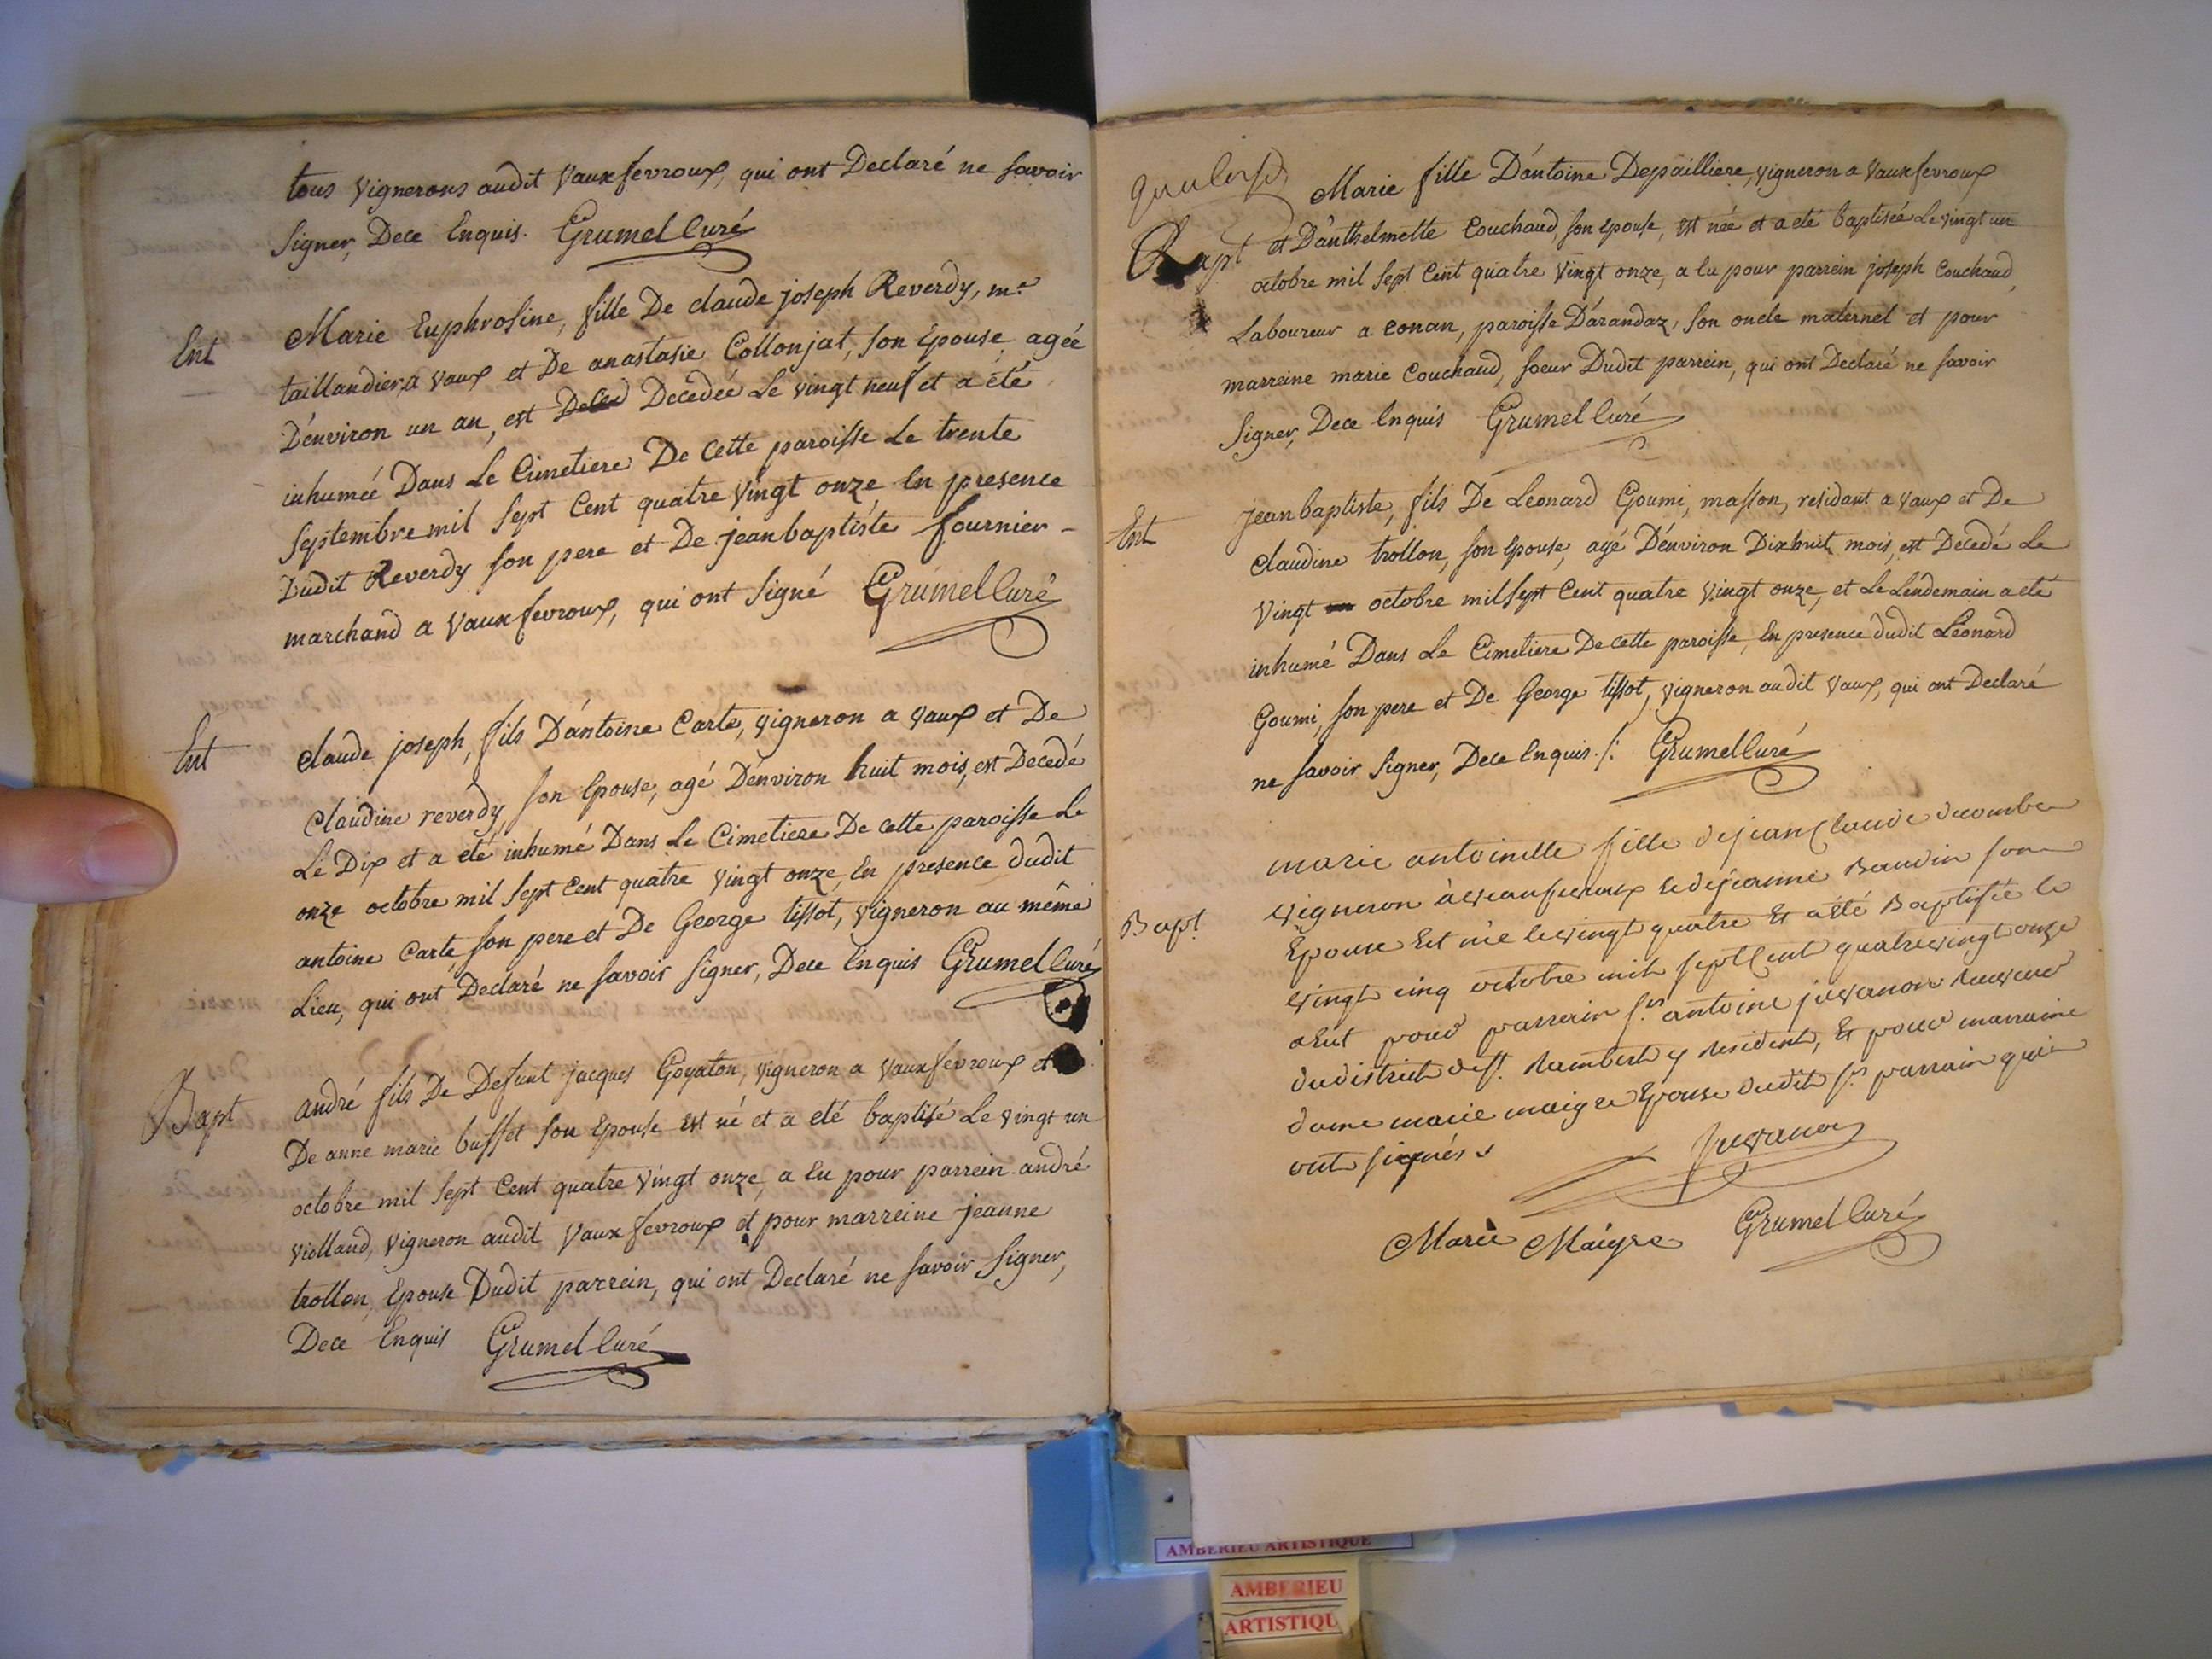 tous vignerons audit Vaux fevroux, qui ont Declaré ne savoir
signer, Dece Enquis. Grumel Curé
Ent
Marie Euphrosine, fille De claude joseph Reverdy, me
taillandier, a vaux et De anastasie Collonjat, son Epouse agée
D'environ un an, est Decedée Le vingt neuf et a eté
inhumée Dans Le Cimetiere De Cette paroisse Le trente
septembre mil sept Cent quatre vingt onze En presence
Dudit Reverdy son pere et De jean baptiste fournier -
marchand a Vaux fevroux, qui ont signé Grumel Curé
Ent
claude joseph, fils D'antoine Carte, vigneron a vaux et De
Claudine reverdy son Epouse, agé D'environ huit mois, est Decedé
Le Dix et a eté inhumé Dans Le Cimetiere De cette paroisse Le
onze octobre mil sept Cent quatre vingt onze, En presence dudit
antoine Carte, son pere et De George tissot, vigneron au même
Lieu, qui ont Declaré ne savoir signer, Dece Enquis Grumel Curé
Bapt
andré fils De Defunt jacques Goyaton, vigneron a vaux fevroux et
De anne marie buffet son Epouse est né et a eté baptisé Le vingt un
octobre mil sept Cent quatre vingt onze, a Eu pour parrein andré
violland, vigneron audit Vaux fevroux et pour marreine jeanne
trollon, Epouse Dudit parrein, qui ont Declaré ne savoir signer,
Dece Enquis Grumel Curé
Marie fille D'antoine Depailliere, vigneron a Vaux fevroux
Bapt
et D'anthelmette Couchaud, son Epouse, est née et a eté baptisée Le vingt un
octobre mil sept Cent quatre vingt onze, a Eu pour parrein joseph Couchaud,
Laboureur a Conan, paroisse D'arandaz, son oncle maternel et pour
marreine marie Couchaud, soeur Dudit parrein, qui ont Declaré ne savoir
signer, Dece Enquis Grumel Curé
Ent
jean baptiste, fils De Leonard Goumi, masson, residant a vaux et De
Claudine trollon, son Epouse, agé D'environ Dix huit mois, est Decedé Le
vingt octobre mil sept Cent quatre vingt onze, et Le Lendemain a eté
inhumé Dans Le Cimetiere De cette paroisse, En presence dudit Leonard
Goumi, son pere et De George tissot, vigneron audit vaux, qui ont Declaré
ne savoir signer, Dece Enquis ./. Grumel Curé
Bapt
marie antoinette fille de jean Claude decombe
vigneron à veaufevroux et de jeanne Baudin son
Epouse Est née le vingt quatre Et a été Baptisée le
vingt cinq octobre mil sept Cent quatre vingt onze
a Eut pour parrein sr. antoine juvanon
du district de st. Rambert y Resident, Et pour marraine
dame marie maigre Epouse dudit sr. parrain qui
ont signés
Juvanon
Marie Maigre Grumel Curé
AMBERIEU ARTISTIQUE
AMBERIEU
ARTISTIQU